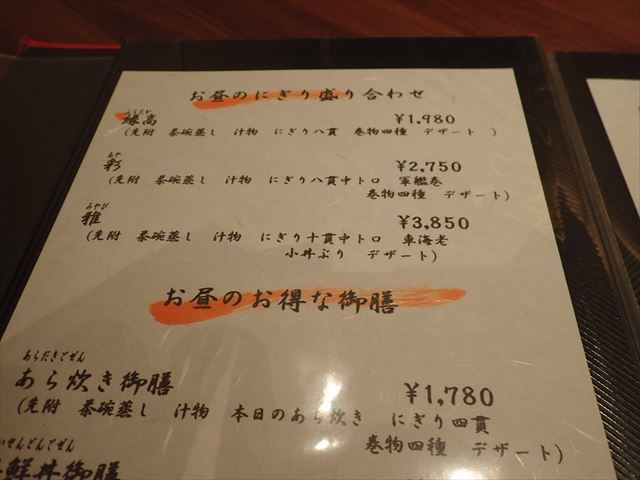 お昼のにぎり盛り合わせ
縁高 ¥1,980
(先附 茶碗蒸し 汁物 にぎり八貫 巻物四種 デザート )
あや
彩 ¥2,750
(先附 茶碗蒸し 汁物 にぎり八貫中トロ 軍艦巻
巻物四種 デザート)
みやび
雅 ¥3,850
(先附 茶碗蒸し 汁物 にぎり十貫中トロ 車海老
小丼ぶり デザート)
お昼のお得な御膳
あらだきごぜん
あら炊き御膳 ¥1,780
(先附 茶碗蒸し 汁物 本日のあら炊き にぎり四貫
巻物四種 デザート)
いせんどんごぜん
鮮丼御膳